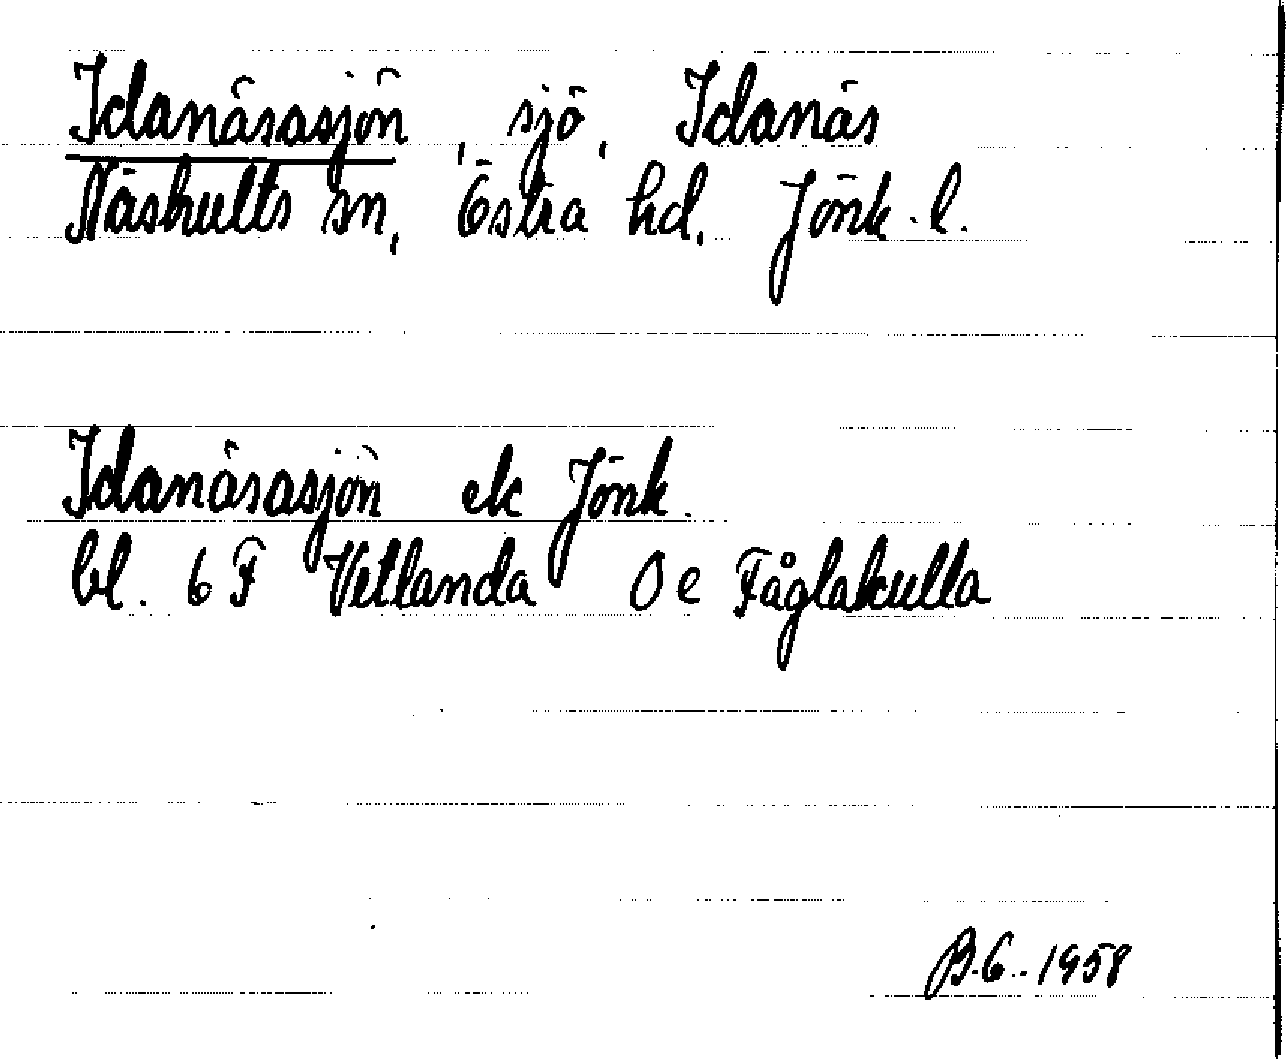 Idanäsasjön, sjö, Idanäs
Näshults sn, Östra hd, Jönk. l.
Idanäsasjön ek Jönk.
bl. 6 F Vetlanda 0 e Fåglakulla
B.G. 1958